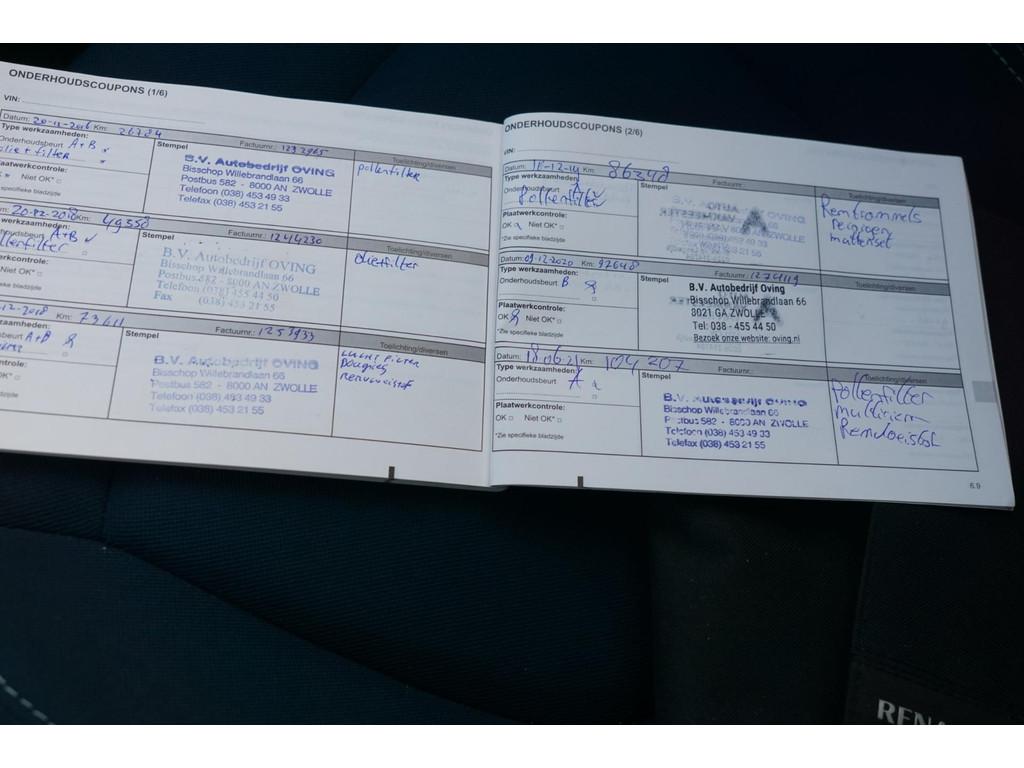 ONDERHOUDSCOUPONS (1/6)
VIN:
Datum: 20-12-2016 Km: 26784
Type werkzaamheden:
Factuurnr.: 1232965
Onderhoudsbeurt A+B
Stempel
Toelichting/diversen
oliefilter
B.V. Autobedrijf OVING
Bisschop Willebrandlaan 66
Postbus 582 - 8000 AN ZWOLLE
Telefoon (038) 453 49 33
Telefax (038) 453 21 55
pollenfilter
Plaatwerkcontrole:
Niet OK*
specifieke bladzijde
20-02-2018 Km: 49558
Factuurnr.: 1244230
werkzaamheden:
A+B
Stempel
Toelichting/diversen
B.V. Autobedrijf OVING
Bisschop Willebrandlaan 66
Postbus 582 - 8000 AN ZWOLLE
Telefoon (038) 455 44 50
Fax (038) 453 21 55
oliefilter
Niet OK*
specifieke bladzijde
12-2018 Km: 73611
Factuurnr.: 1253933
A+B
Stempel
Toelichting/diversen
B.V. Autobedrijf OVING
Bisschop Willebrandlaan 66
Postbus 582 - 8000 AN ZWOLLE
Telefoon (038) 453 49 33
Telefax (038) 453 21 55
Lucht filter
Bougies
Remvloeistof
Niet OK*
specifieke bladzijde
ONDERHOUDSCOUPONS (2/6)
VIN:
Datum: Km: 86348
Factuurnr.:
Type werkzaamheden:
Stempel
Toelichting/diversen
Onderhoudsbeurt A
Pollenfilter
Remtrommels
reinigen
mattenset
Plaatwerkcontrole:
OK Niet OK*
*Zie specifieke bladzijde
Datum: 09-12-2020 Km: 92648
Factuurnr.: 1274119
Type werkzaamheden:
Stempel
Toelichting/diversen
Onderhoudsbeurt B
B.V. Autobedrijf Oving
Bisschop Willebrandlaan 66
8021 GA ZWOLLE
Tel: 038 - 455 44 50
Bezoek onze website: oving.nl
Plaatwerkcontrole:
OK Niet OK*
*Zie specifieke bladzijde
Datum: 18.06.21 Km: 104207
Factuurnr.:
Type werkzaamheden:
Stempel
Toelichting/diversen
Onderhoudsbeurt A
B.V. Autobedrijf OVING
Bisschop Willebrandlaan 66
Postbus 582 - 8000 AN ZWOLLE
Telefoon (038) 453 49 33
Telefax (038) 453 21 55
Pollenfilter
multiriem
Remvloeistof
Plaatwerkcontrole:
OK Niet OK*
*Zie specifieke bladzijde
6.9
REN